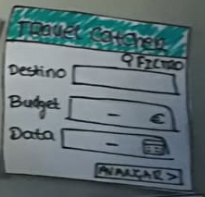 TRavel Catcher
FILTRO
Destino
Budget - €
Data -
AVANÇAR >